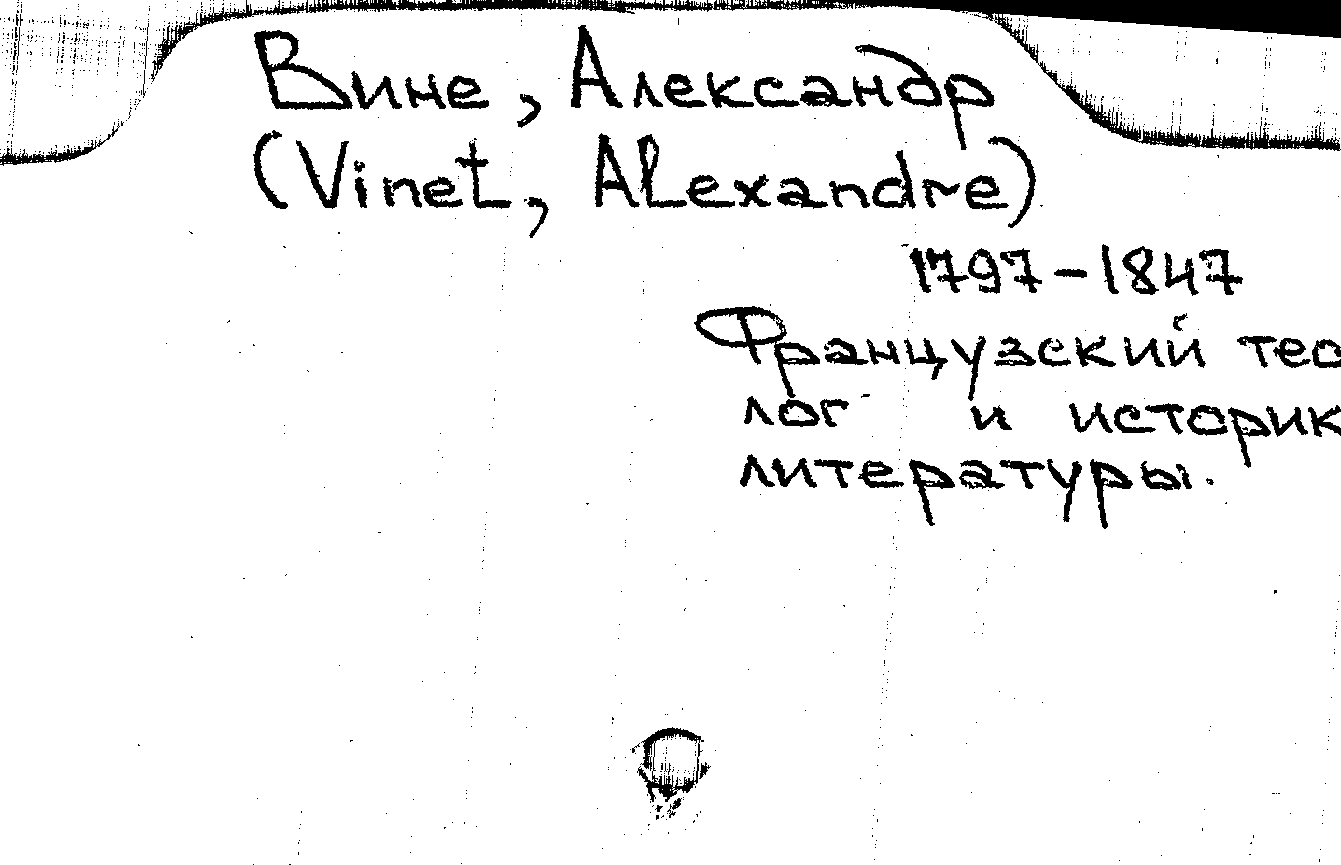 Вине, Александр
(Vinet, Alexandre)
1797-1847
Французский тео
лог и историк
литературы.